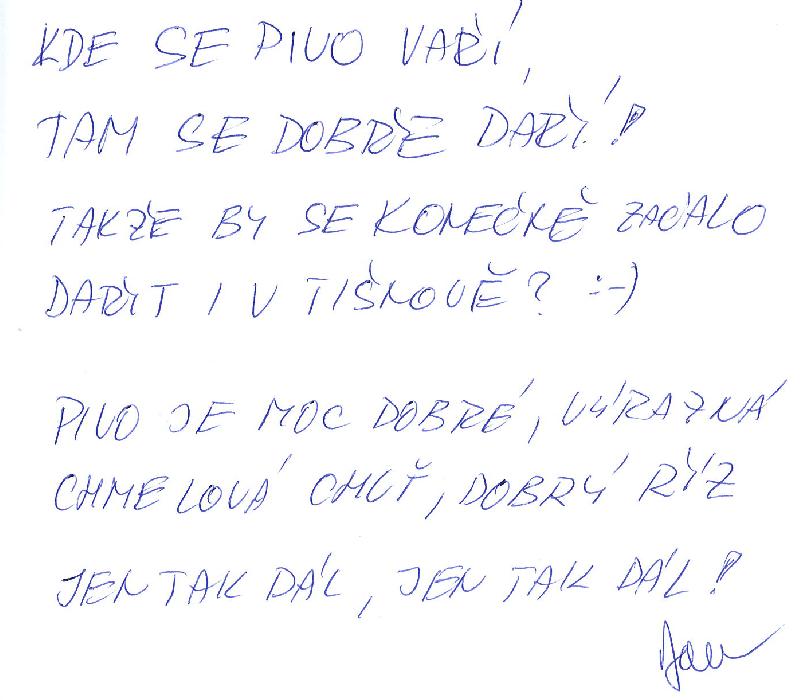 KDE SE PIVO VAŘÍ,
TAM SE DOBŘE DAŘÍ!
TAKŽE BY SE KONEČNĚ ZAČALO
DAŘIT I V TIŠNOVĚ? :-)
PIVO JE MOC DOBRÉ, VÝRAZNÁ
CHMELOVÁ CHUŤ, DOBRÝ ŘÍZ
JEN TAK DÁL, JEN TAK DÁL!